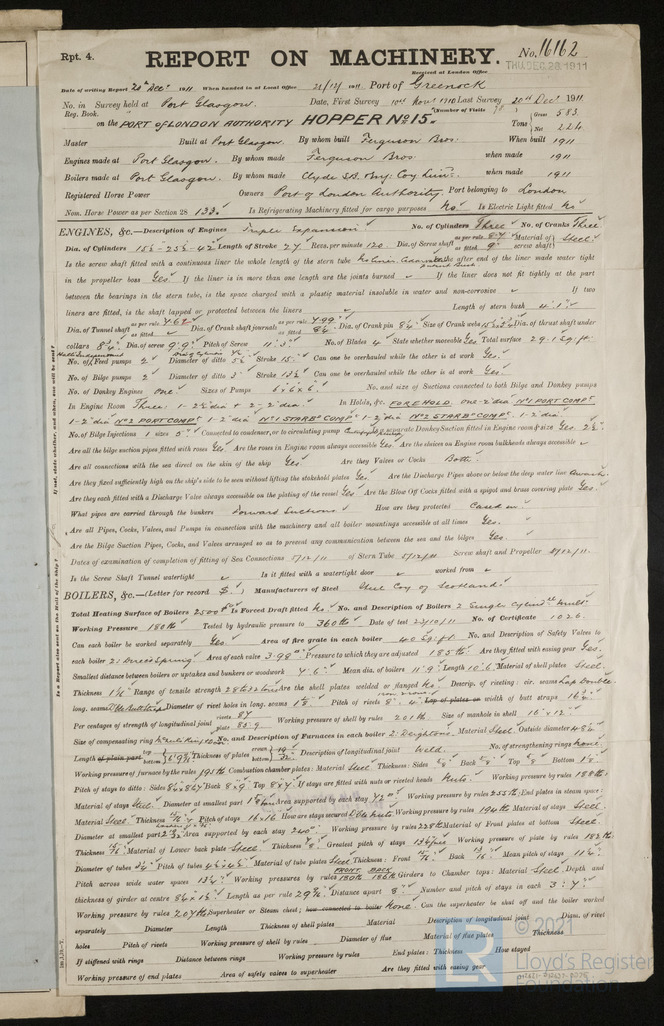 Rpt. 4.
REPORT ON MACHINERY.
No. 16162
Received at London Office
THU. DEC. 28 1911
Date of writing Report 20th Decr 1911 When handed in at Local Office 21/12/1911 Port of Greenock
No. in Survey held at Port Glasgow. Date, First Survey 10th Novr 1910 Last Survey 20th Decr 1911
Reg. Book. (Number of Visits
on the PORT OF LONDON AUTHORITY HOPPER No 15. Tons { Gross 583 Net 224
Master Built at Port Glasgow. By whom built Ferguson Bros. When built 1911
Engines made at Port Glasgow. By whom made Ferguson Bros. when made 1911
Boilers made at Port Glasgow. By whom made Clyde S.B. & Eng. Coy Limd. when made 1911
Registered Horse Power Owners Port of London Authority. Port belonging to London
Nom. Horse Power as per Section 28 133. Is Refrigerating Machinery fitted for cargo purposes No Is Electric Light fitted No
ENGINES, &c.—Description of Engines Triple Expansion No. of Cylinders Three No. of Cranks Three
Dia. of Cylinders 15½-25½-42 Length of Stroke 27 Revs. per minute 120 Dia. of Screw shaft as per rule 8.7 as fitted 9" Material of screw shaft Steel
Is the screw shaft fitted with a continuous liner the whole length of the stern tube No liner Is the after end of the liner made water tight
in the propeller boss Yes If the liner is in more than one length are the joints burned If the liner does not fit tightly at the part
between the bearings in the stern tube, is the space charged with a plastic material insoluble in water and non-corrosive If two
liners are fitted, is the shaft lapped or protected between the liners Length of stern bush 4'.1"
Dia. of Tunnel shaft as per rule 7.62 as fitted Dia. of Crank shaft journals as per rule 7.99 as fitted 8¼ Dia. of Crank pin 8¼ Size of Crank webs Dia. of thrust shaft under
collars 8¼ Dia. of screw 9'.9" Pitch of Screw 11'.3" No. of Blades 4 State whether moveable Yes Total surface 29.1 sq. ft.
No. of Feed pumps 2 Diameter of ditto Stroke 15 Can one be overhauled while the other is at work Yes
No. of Bilge pumps 2 Diameter of ditto 3 Stroke 13½ Can one be overhauled while the other is at work Yes
No. of Donkey Engines one Sizes of Pumps 6 x 6 x 6 No. and size of Suctions connected to both Bilge and Donkey pumps
In Engine Room Three: 1-2½ dia & 2-2 dia. In Holds, &c. FORE HOLD. one-2 dia No1 PORT COMPt.
1-2 dia No2 PORT COMPt. 1-2 dia No1 STARBd COMPt 1-2 dia No2 STARBd COMPt. 1-2 dia
No. of Bilge Injections 1 sizes 5" Connected to condenser, or to circulating pump Is a separate Donkey Suction fitted in Engine room & size Yes 2½
Are all the bilge suction pipes fitted with roses Yes Are the roses in Engine room always accessible Yes Are the sluices on Engine room bulkheads always accessible
Are all connections with the sea direct on the skin of the ship Yes. Are they Valves or Cocks Both.
Are they fixed sufficiently high on the ship's side to be seen without lifting the stokehold plates Yes Are the Discharge Pipes above or below the deep water line
Are they each fitted with a Discharge Valve always accessible on the plating of the vessel Yes Are the Blow Off Cocks fitted with a spigot and brass covering plate Yes.
What pipes are carried through the bunkers Forward Suctions How are they protected Cased in
Are all Pipes, Cocks, Valves, and Pumps in connection with the machinery and all boiler mountings accessible at all times Yes.
Are the Bilge Suction Pipes, Cocks, and Valves arranged so as to prevent any communication between the sea and the bilges Yes.
Dates of examination of completion of fitting of Sea Connections 5/12/11 of Stern Tube 5/12/11 Screw shaft and Propeller 5/12/11.
Is the Screw Shaft Tunnel watertight Is it fitted with a watertight door worked from
BOILERS, &c.—(Letter for record S) Manufacturers of Steel Steel Coy of Scotland
Total Heating Surface of Boilers 2500 Is Forced Draft fitted No No. and Description of Boilers 2 Single Cylindl Multr
Working Pressure 180 lb Tested by hydraulic pressure to 360 lb Date of test 24/10/11 No. of Certificate 1026.
Can each boiler be worked separately Yes Area of fire grate in each boiler 40 sq. ft No. and Description of Safety Valves to
each boiler 2: Direct Spring Area of each valve 3.98 Pressure to which they are adjusted 185 lb Are they fitted with easing gear Yes.
Smallest distance between boilers or uptakes and bunkers or woodwork 4'.6" Mean dia. of boilers 11'.9" Length 10'.6" Material of shell plates Steel
Thickness Range of tensile strength 28 to 32 tons Are the shell plates welded or flanged No Descrip. of riveting: cir. seams Lap Double
long. seams Diameter of rivet holes in long. seams Pitch of rivets Lap of plates or width of butt straps
Per centages of strength of longitudinal joint rivets 87 plate 85.9 Working pressure of shell by rules 201 lb. Size of manhole in shell 16 x 12
Size of compensating ring No. and Description of Furnaces in each boiler 2: Deightons Material Steel Outside diameter
Length of plain part top bottom Thickness of plates crown bottom Description of longitudinal joint Weld. No. of strengthening rings None.
Working pressure of furnace by the rules 191 lb Combustion chamber plates: Material Steel Thickness: Sides Back Top Bottom
Pitch of stays to ditto: Sides Back 8 x 9 Top 8 x 7 If stays are fitted with nuts or riveted heads Nuts. Working pressure by rules 188 lb:
Material of stays Steel Diameter at smallest part Area supported by each stay Working pressure by rules 255 lb End plates in steam space:
Material Steel Thickness Pitch of stays 16 x 16 How are stays secured Dble Nuts Working pressure by rules 194 lb Material of stays Steel.
Diameter at smallest part Area supported by each stay 240 Working pressure by rules 228 lb Material of Front plates at bottom Steel.
Thickness Material of Lower back plate Steel Thickness Greatest pitch of stays Working pressure of plate by rules 182 lb
Diameter of tubes 3¼ Pitch of tubes Material of tube plates Steel Thickness: Front Back Mean pitch of stays
Pitch across wide water spaces 13¼ Working pressures by rules FRONT 180 lb BACK 186 lb Girders to Chamber tops: Material Steel Depth and
thickness of girder at centre Length as per rule Distance apart 8 Number and pitch of stays in each 3: 7
Working pressure by rules 207 lb Superheater or Steam chest; how connected to boiler None. Can the superheater be shut off and the boiler worked
separately Diameter Length Thickness of shell plates Material Description of longitudinal joint Diam. of rivet
holes Pitch of rivets Working pressure of shell by rules Diameter of flue Material of flue plates Thickness
If stiffened with rings Distance between rings Working pressure by rules End plates: Thickness How stayed
Working pressure of end plates Area of safety valves to superheater Are they fitted with easing gear
© 2021
Lloyd's Register
Foundation